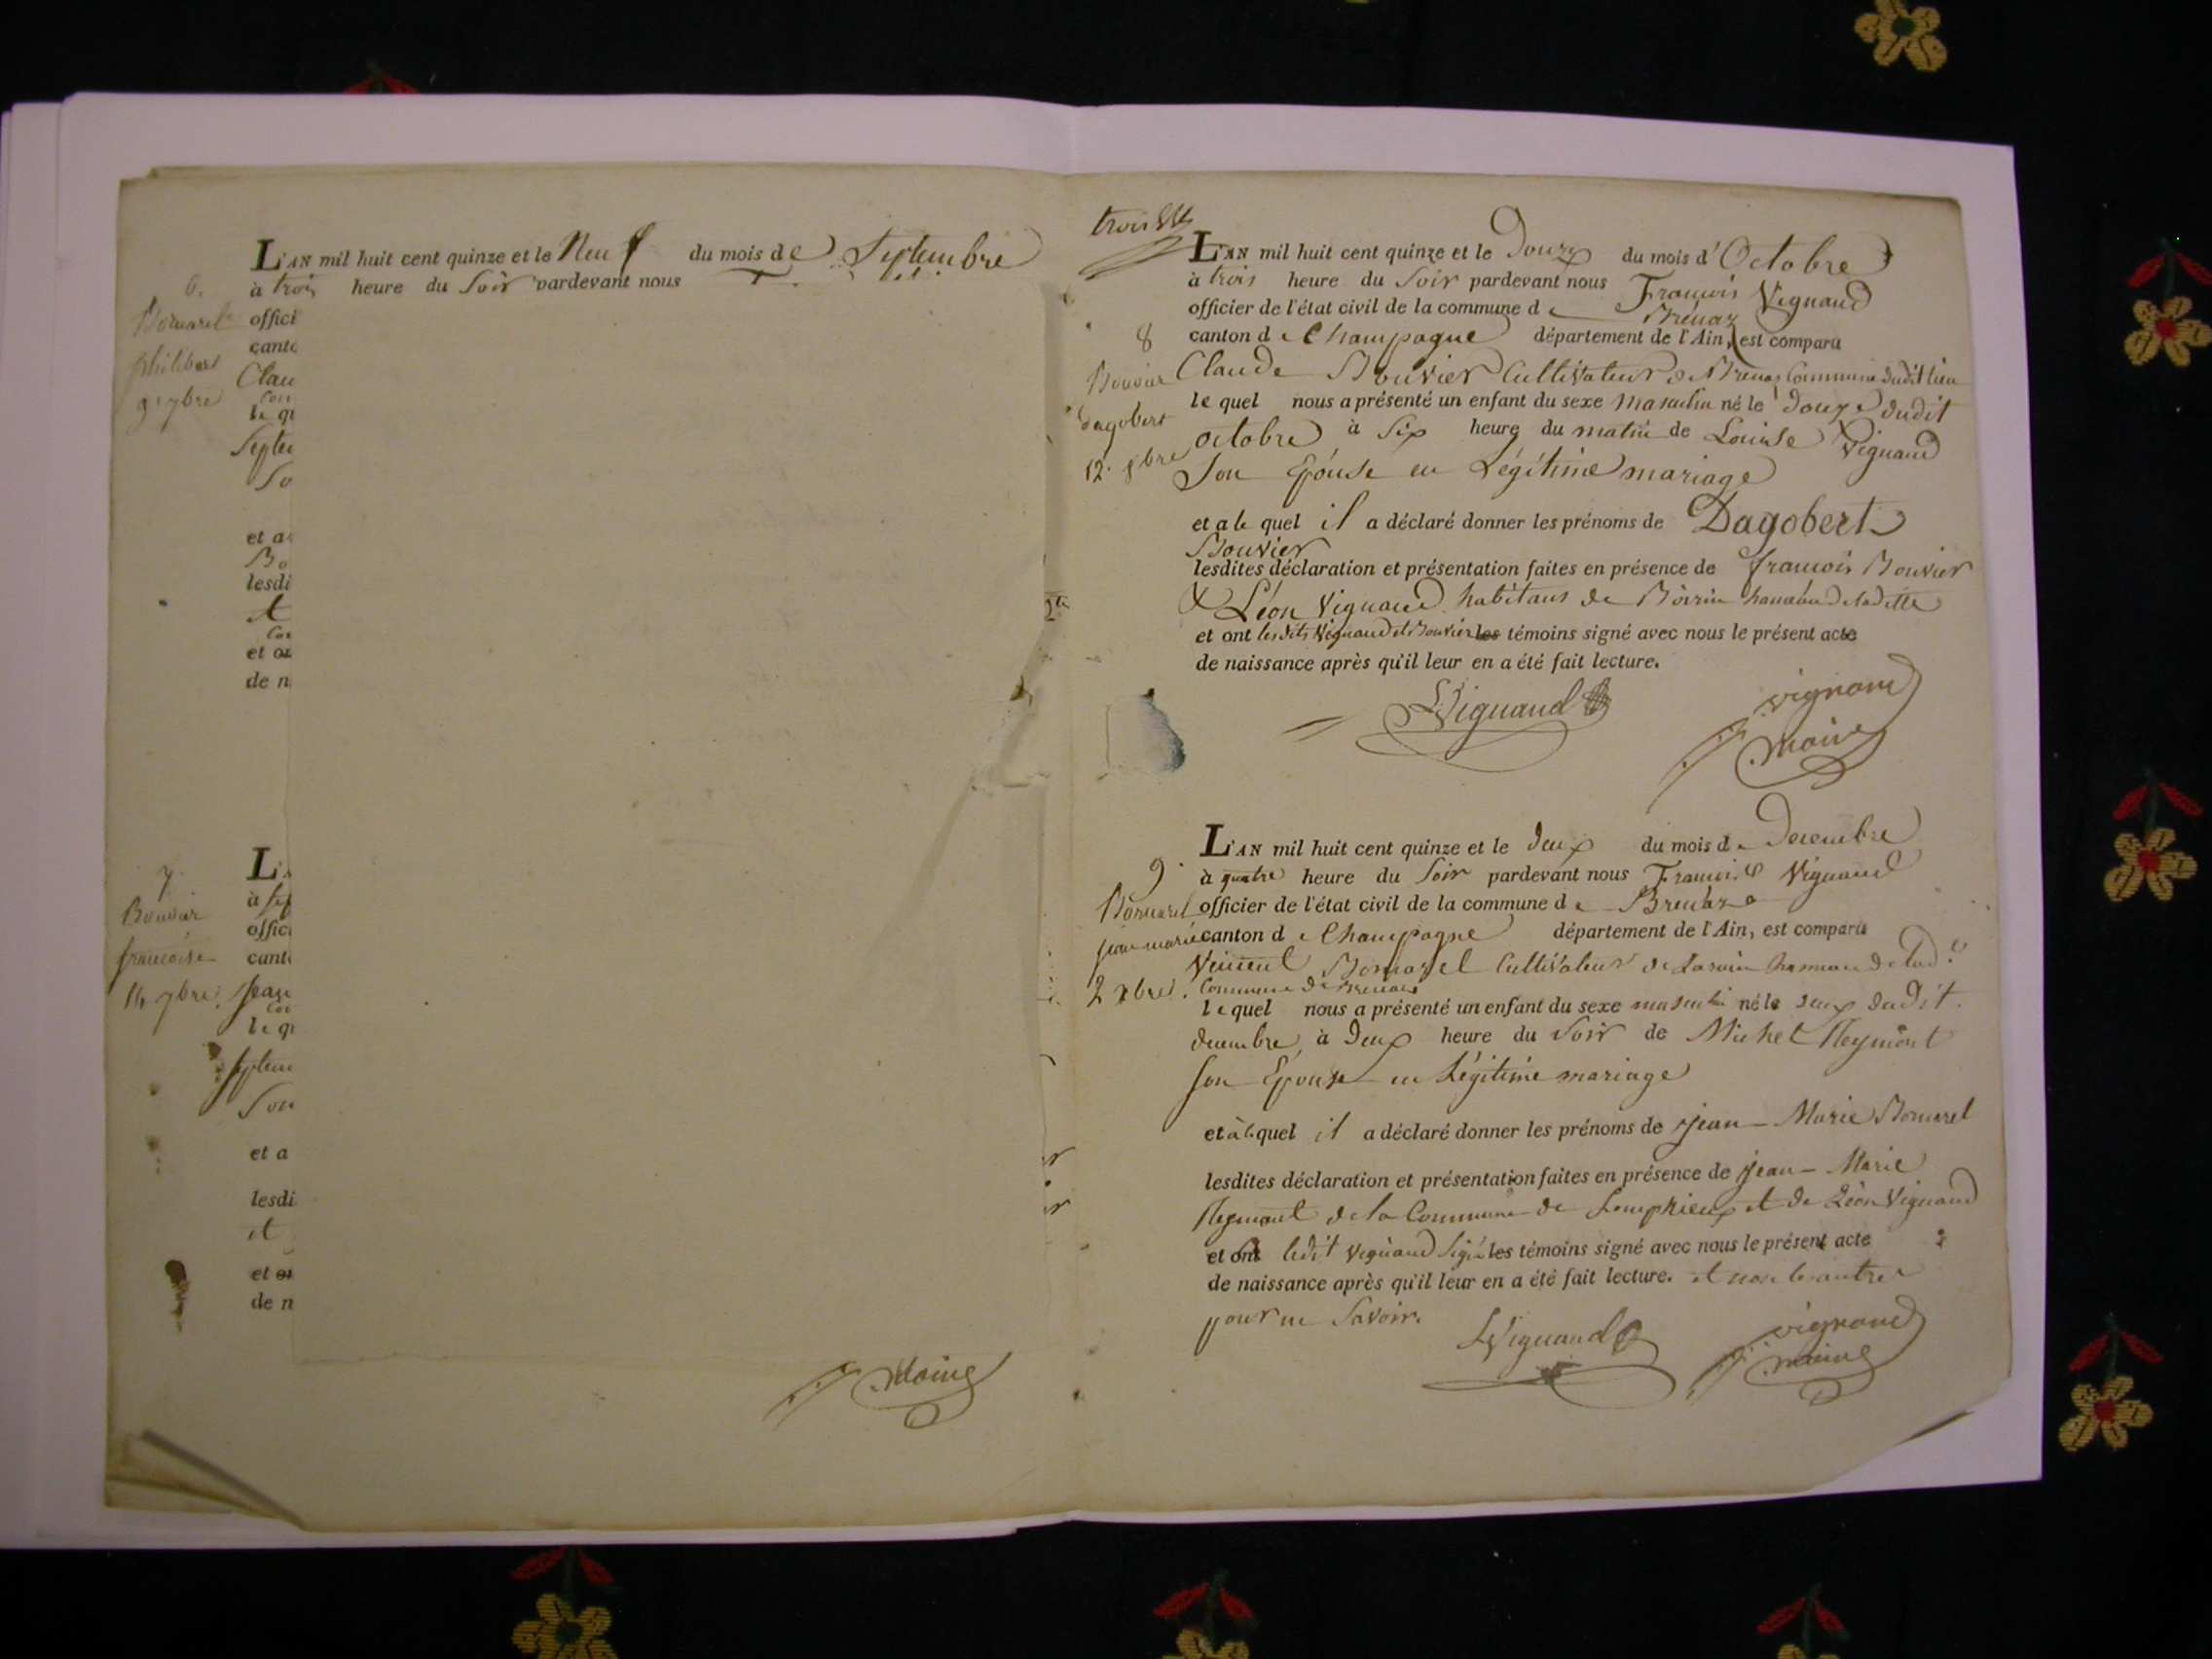 L'AN mil huit cent quinze et le Neuf du mois de Septembre
6. à trois heure du Soir pardevant nous
Bornarel offici
philibert cant
9. 7bre Clau
Com
le qu
Septem
So
et a
Bo
lesdi
et
Com
et on
de n
7. L'A
à sep
Bouvier offic
françoise cant
14 7bre. Jean
Com
le qu
Septem
Son
et a
lesdi
et
et on
de n
Maire
trois
L'AN mil huit cent quinze et le Douze du mois d'Octobre
à trois heure du Soir pardevant nous François Vignand
officier de l'état civil de la commune de Brenaz
8 canton de Champagne département de l'Ain, est comparu
Bouvier Claude Bouvier Cultivateur de Brenaz Commune dudit lieu
le quel nous a présenté un enfant du sexe masculin né le douze dudit
dagobert
octobre à Six heure du matin de Louise Vignand
12. 8bre Son Epouse en Légitime mariage
et a le quel il a déclaré donner les prénoms de Dagobert
Bouvier
lesdites déclaration et présentation faites en présence de françois Bouvier
& Léon Vignand habitans de hameau de laditte
et ont lesdits Vignand et Bouvier les témoins signé avec nous le présent acte
de naissance après qu'il leur en a été fait lecture.
LVignand vignand
maire
L'AN mil huit cent quinze et le deux du mois de Decembre
9. à quatre heure du Soir pardevant nous François Vignand
Bornarel officier de l'état civil de la commune de Brenaz
jean marie canton de Champagne département de l'Ain, est comparu
Vincent Bornarel Cultivateur de hameau de lad.e
2 xbre. Commune de Brenaz
le quel nous a présenté un enfant du sexe masculin né le deux dudit
decembre, à Deux heure du Soir de Michel Reymont
son Epouse en Légitime mariage
et à le quel il a déclaré donner les prénoms de jean-Marie Bornarel
lesdites déclaration et présentation faites en présence de jean-Marie
Reymont de la Commune de Lompnieux et de Léon Vignand
et ont ledit Vignand Signé les témoins signé avec nous le présent acte
de naissance après qu'il leur en a été fait lecture. et non le autre
pour ne Savoir.
LVignand vignand
maire